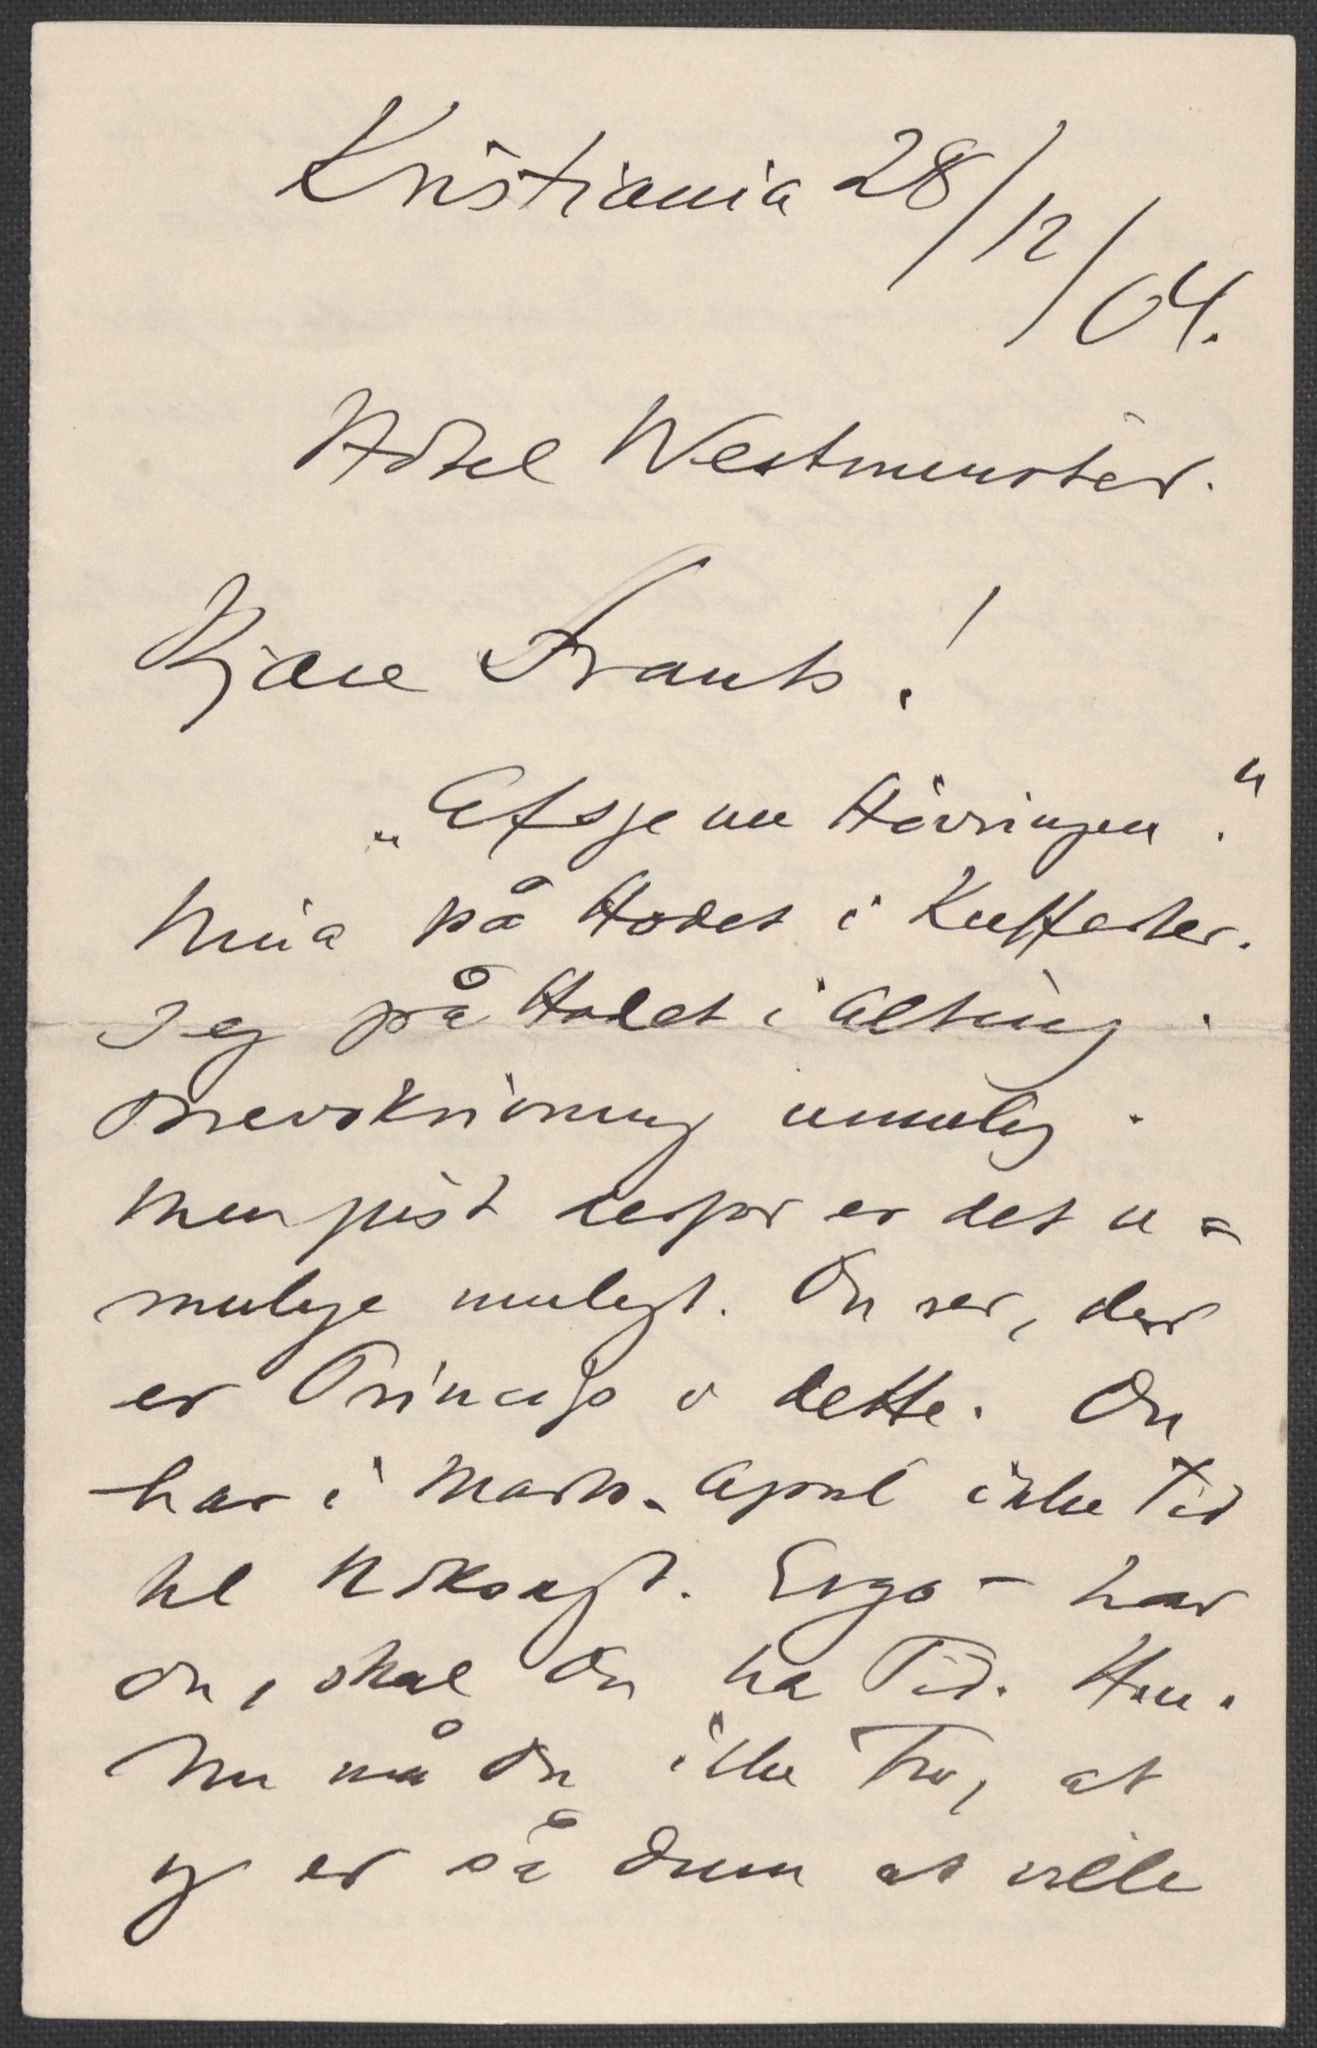 Kristiania 28/12/04.
Hôtel Westminster.
Kjære Frants!
„Afsje nu Hövringen“.
Nina på Hodet i Kufferter.
Jeg på Hodet i Alting.
Brevskrivning umulig.
Men just derfor er det u=
mulige muligt. Du ser, der
er Princip i dette. Du
har i Marts-April ikke Tid
til Utkongst. Ergo – har
du, skal du ha Tid. Hm.
Nu må du ikke tro, at
jeg er så dum at ville